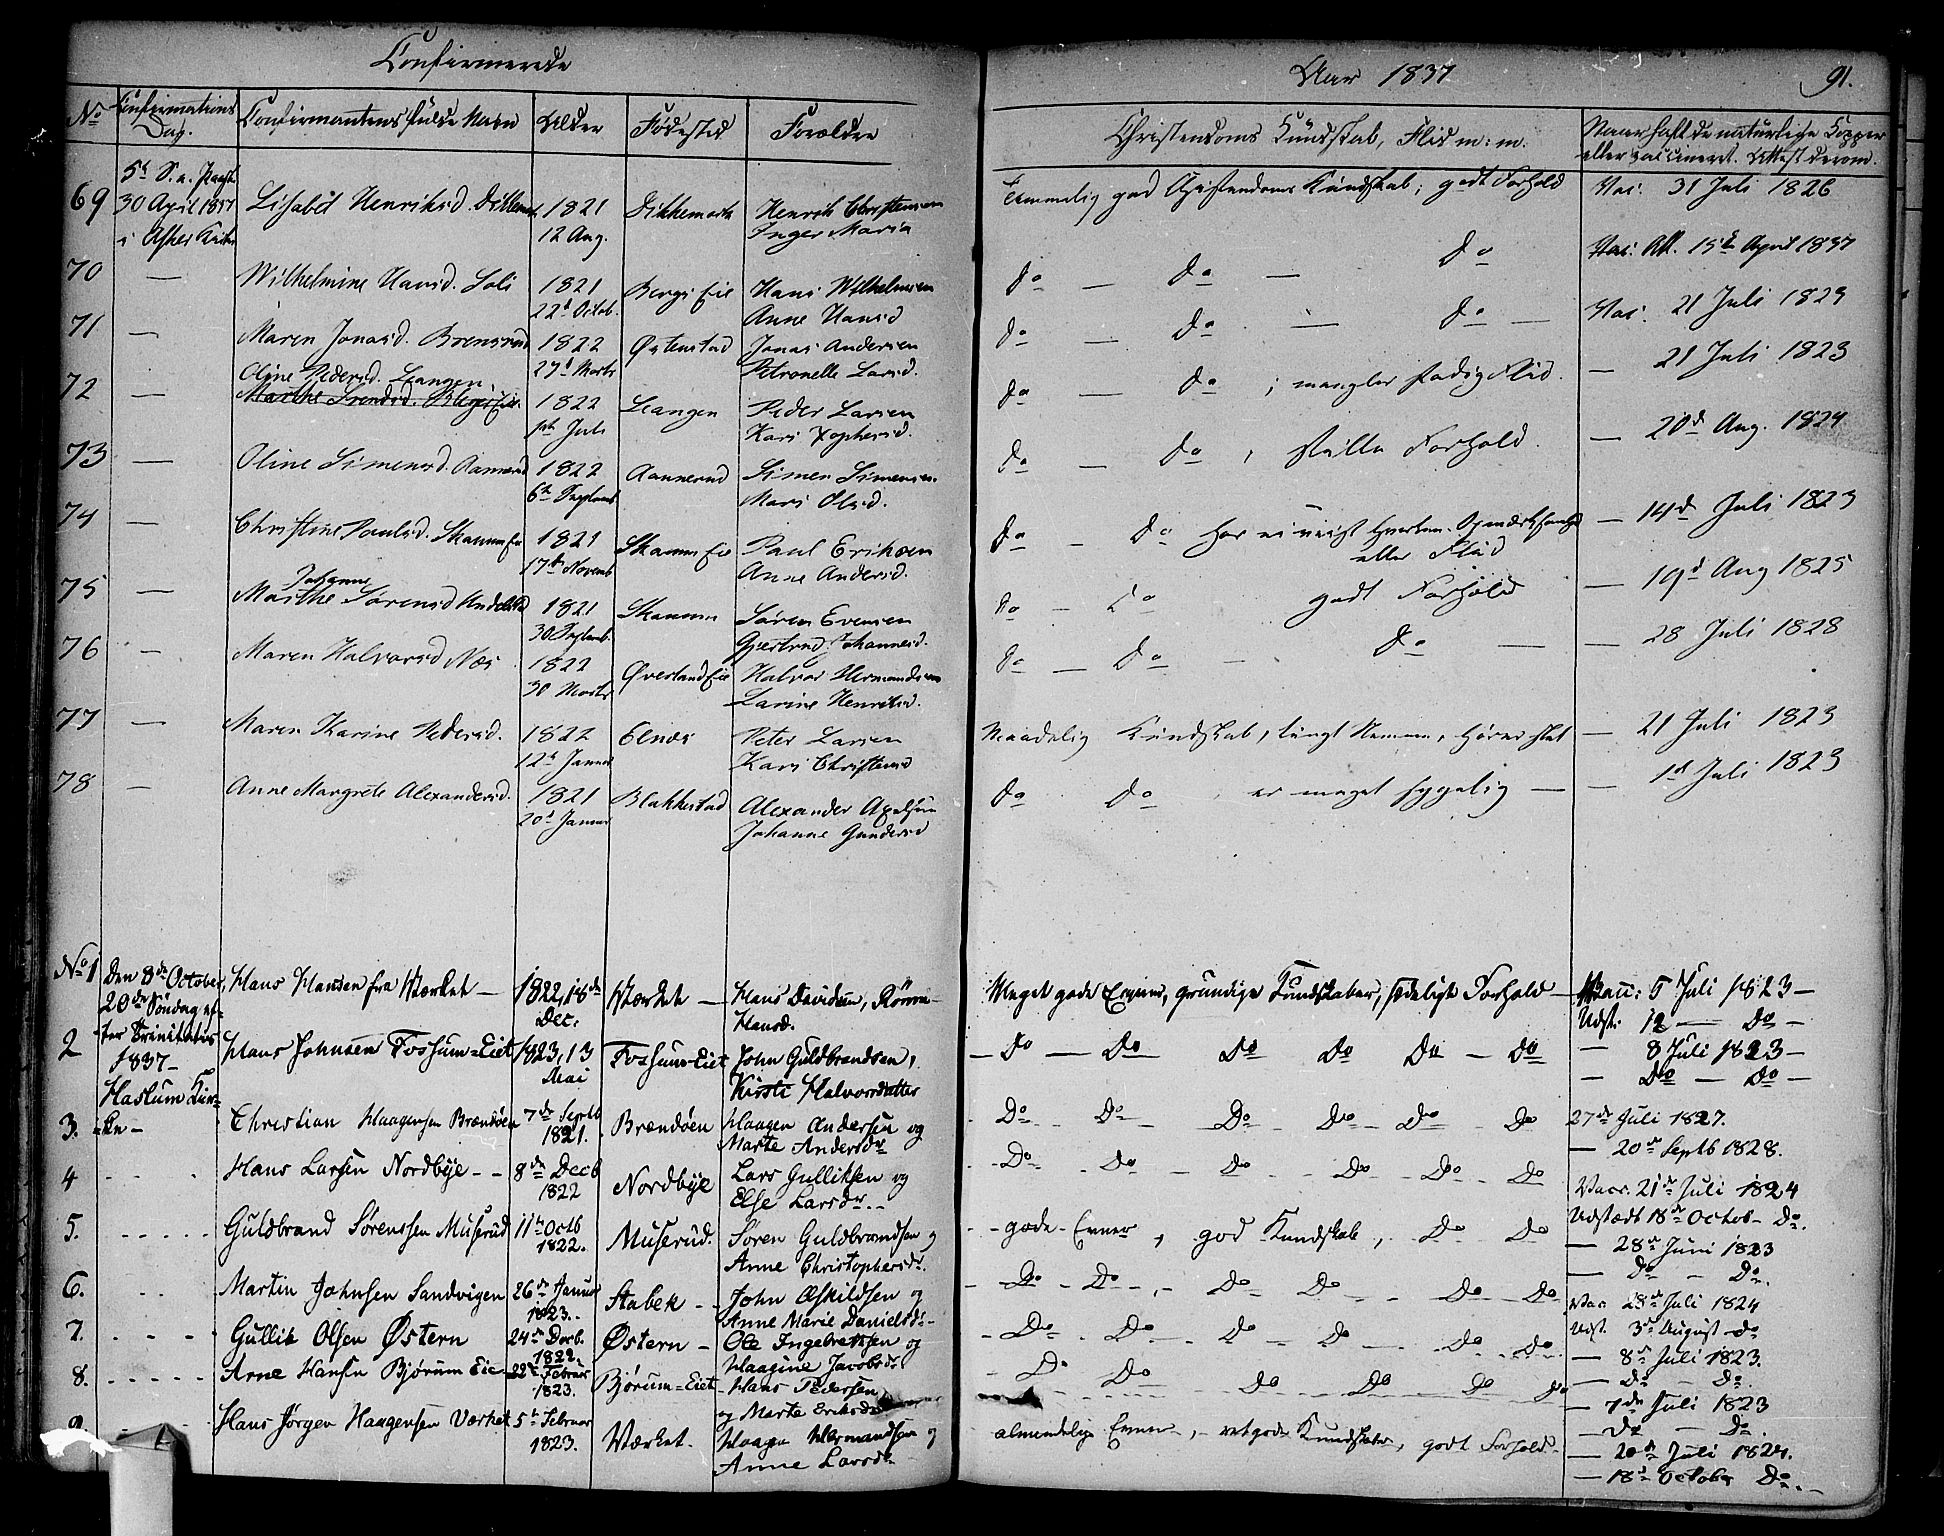 Confirmerede
Aar 1837
91.
No Confirmations Dag. Confirmantens fulde Navn Alder Fødested Forældre Christendoms Kundskab, Flid m: m. Naar haft de naturlige Kopper
eller vaccineret. Attest derom.
5te S. a. Paask
69 30 April 1837 Lisabet Henriksd. 1821 Dikkemark Henrik Christensen Temmelig god Christendoms Kundskab; godt Forhold Vac. 31 Juli 1826
i Asker Kirke 12 Aug. Inger Maria
70 — Wilhelmine Hansd. Soli 1821 Bergs Eie Hans Wilhelmsen Do — Do — Do Vac: Att. 15de April 1837
22d Octob. Anne Hansd
71 — Maren Jonasd. Brensrud 1822 Østenstad Jonas Andersen Do — Do — Do — Vac. 21 Juli 1823
27d Marts Petronelle Larsd.
Oline Pedersd. Leangen
72 — Marthe Svendsd. 1822 Leangen Peder Larsen Do Do ; mangler stadig Flid. — 21 Juli 1823
Juli Kari Xophersd.
73 — Oline Simensd. Aannerud 1822 Aannerud Simen Simensen Do — Do , stille Forhold. — 20de Aug. 1824
6te Septemb. Mari Olsd.
74 — Christine Paulsd. Skaum Eie 1821 Skaum Eie Paul Eriksen Do — Do har ei viist hverken Opmærksomhed — 14de Juli 1823
17de Novemb Anne Andersd. eller Flid
Johanne
75 — Marthe Sørensd 1821 Skaum Søren Evensen Do — Do godt Forhold — 19d Aug 1825
30 Septemb. Gjertrud Johannesd.
76 — Maren Halvorsd Næs 1822 Øverland Eie Halvor Hermandsen Do — Do — Do — — 28 Juli 1828
30 Marts Larine Henriksd.
77 — Maren Karine Pedersd. 1822 Elnæs Peter Larsen Maadelig Kundskab, tungt Nemme, hører slet — 21 Juli 1823
12te Januar Kari Christensd
78 — Anne Margrete Alexandersd. 1821 Blakkestad Alexander Axelsen Do Do , er meget sygelig — — 1st Juli 1823
20d Januar Johanne Gundersd
No 1 Den 8de October, Hans Hansen fra Værket — 1822, 18de Værket — Hans Davidsen, Meget gode Evner, grundige Kundskaber, sædeligt Forhold — Vacc: 5 Juli 1823 —
20de Søndag ef- Dec. Hansd. Udst. 12 — Do —
2 ter Trinitatis Hans Johnsen Fossum=Eiet 1823, 13 Fossum-Eiet John Guldbrandsen, — Do — Do Do Do Do — Do — 8 Juli 1823 —
1837 — Mai Kirsti Halvorsdatter — Do — Do —
Haslum Kir-
3. =ke — Christian Haagensen Brændøen 7de Septb Brændøen Haagen Andersen og Do Do Do Do Do Do 27de Juli 1827.
1821. Marte Andersdr — 20de Septb 1828.
4 Hans Larsen Nordbye — — 8de Decb Nordbye Lars Gulliksen og Do Do — Do Do Do Do Vacc. 21de Juli 1824
1822 Else Larsdr. Udstædt 18de Octob — Do.
5. Guldbrand Sørenssen Muserud 11te Octb Muserud. Søren Guldbrandsen og gode Evner, god Kundskab, Do Do — 28de Juni 1823
1822. Anne Christophersdr. — Do — Do.
6. Martin Johnsen Sandvigen 26de Januar Stabek — John Askildsen og Do Do Do Do Do Do Vac. 23de Juli 1824
1823. Anne Marie Danielsdr. Udst. 3de August Do
7. Gullik Olsen Østern 24de Decb. Østern — Ole Ingebretsen og Do Do Do Do Do Do — 8de Juli 1823.
1822 Haagine Jacobsdr — Do — Do.
8. Arne Hansen Bjørum Eie 22de Februar Bjørum=Eiet Hans Pedersen Do Do Do Do Do Do — 7de Juli 1823
1823. og Marte Eriksdr — Do — Do.
9 Hans Jørgen Haagensen Værket 5te Februar Værket. Haagen Hermandsen og almindelige Evner, — ret gode Kundskaber, godt Forhold — — 20de Juli 1824.
1823. Anne Larsdr — 18de October Do.